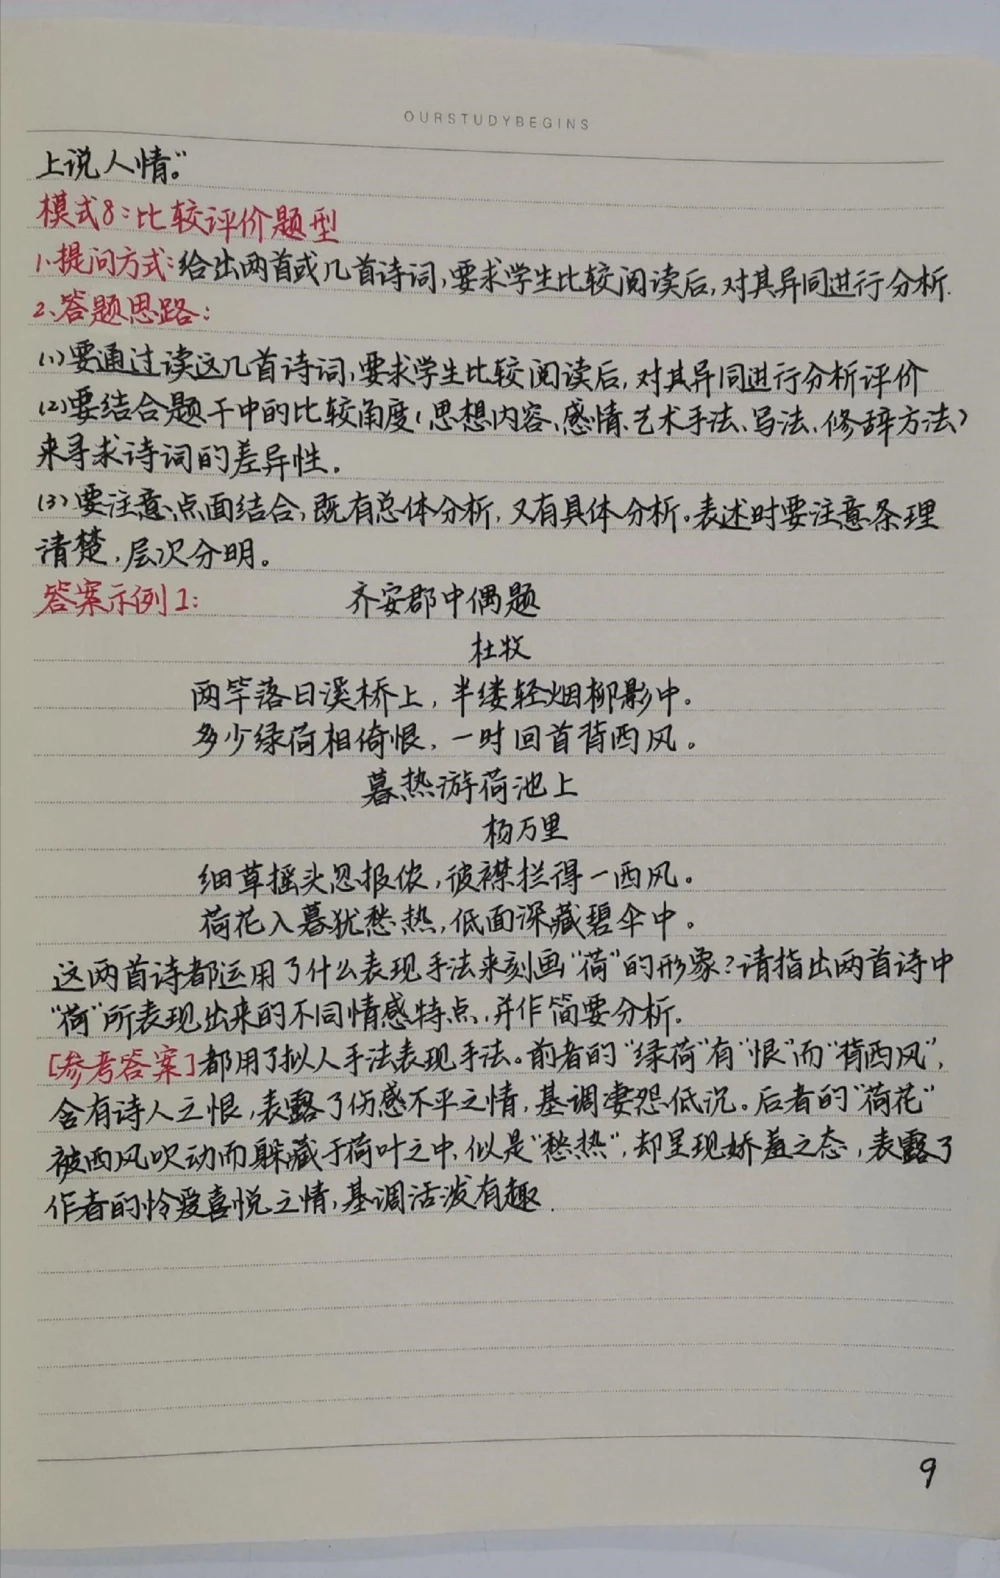 OURSTUDYBEGINS
上说人情。”
模式8:比较评价题型
1.提问方式:给出两首或几首诗词,要求学生比较阅读后,对其异同进行分析.
2.答题思路:
(1)要通过读这几首诗词,要求学生比较阅读后,对其异同进行分析评价
(2)要结合题干中的比较角度(思想内容、感情、艺术手法、写法、修辞方法)
来寻求诗词的差异性。
(3)要注意点面结合,既有总体分析,又有具体分析。表述时要注意条理
清楚,层次分明。
答案示例1: 齐安郡中偶题
杜牧
两竿落日溪桥上,半缕轻烟柳影中。
多少绿荷相倚恨,一时回首背西风。
暮热游荷池上
杨万里
细草摇头忽报侬,披襟拦得一西风。
荷花入暮犹愁热,低面深藏碧伞中。
这两首诗都运用了什么表现手法来刻画“荷”的形象?请指出两首诗中
“荷”所表现出来的不同情感特点,并作简要分析.
[参考答案]都用了拟人手法表现手法。前者的“绿荷”有“恨”而“背西风”,
含有诗人之恨,表露了伤感不平之情,基调凄怨低沉。后者的“荷花”
被西风吹动而躲藏于荷叶之中,似是“愁热”,却呈现娇羞之态,表露了
作者的怜爱喜悦之情,基调活泼有趣.
9